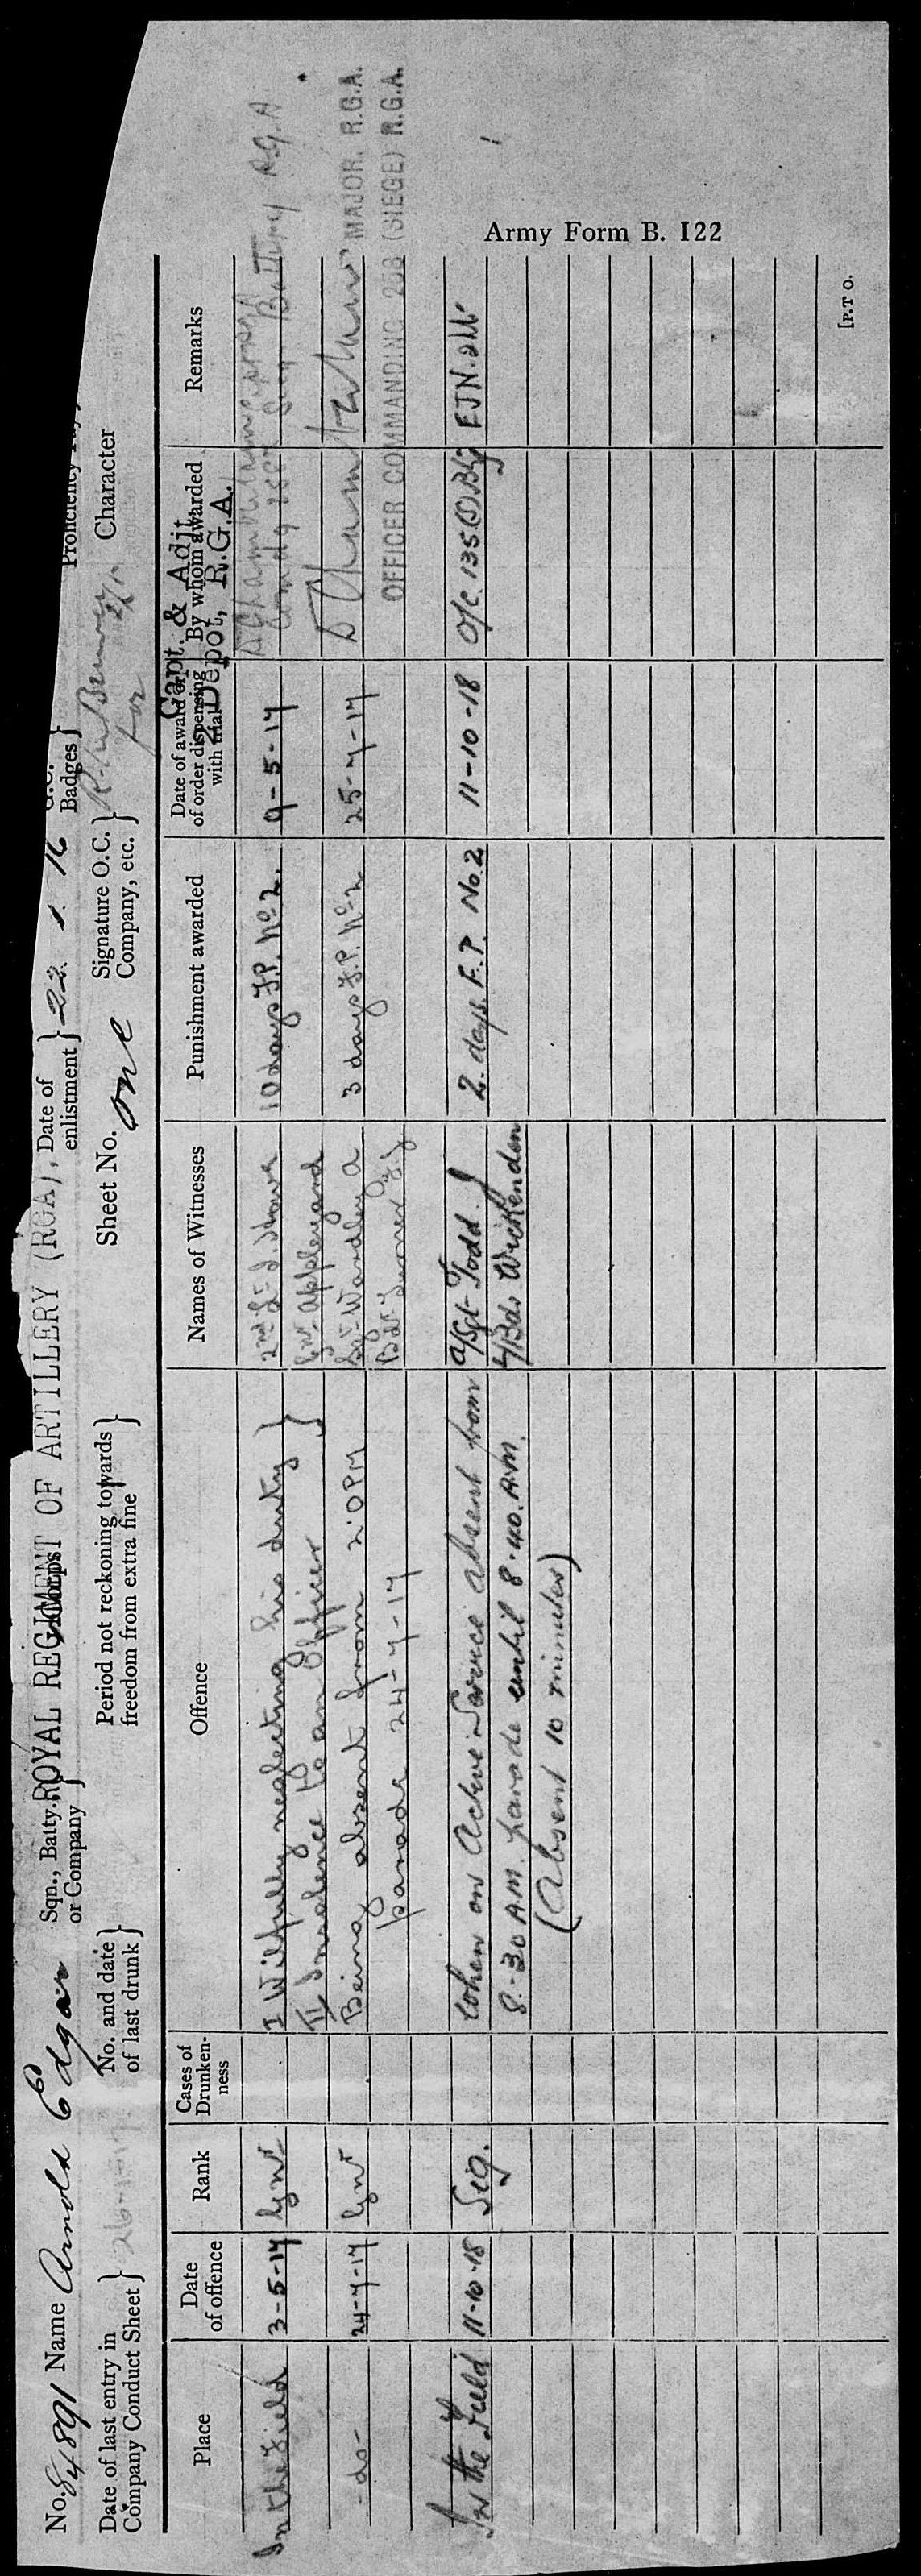 No. 84891 Name Arnold Edgar Sqn., Batty. or Company } ROYAL REGIMENT OF ARTILLERY (RGA), Date of enlistment } 22. 1. 16 G.C. Badges } Proficiency
Corps
Date of last entry in Company Conduct Sheet } No. and date of last drunk } Period not reckoning towards freedom from extra fine } Sheet No. one Signature O.C. Company, etc. } for Character
Capt. & Adjt
2 Depot, R.G.A.
Place Date of offence Rank Cases of Drunken-ness Offence Names of Witnesses Punishment awarded Date of award or of order dispensing with trial By whom awarded Remarks
In the Field 3-5-17 Gnr I Wilfully neglecting his duty } 2nd Lt 10 days F.P. No 2. 9-5-17 Battery R.G.A
II Insolence to an Officer Gnr Appleyard
-do- 24-7-17 Gnr Being absent from 2.0 PM Sgt A 3 days F.P. No 2 25-7-17 MAJOR, R.G.A.
parade 24-7-17 Bdr OFFICER COMMANDING (SIEGE) R.G.A.
In the Field 11-10-18 Sig. When on Active Service absent from a/Sgt Todd J 2. days F.P. No. 2 11-10-18 O/c. 135 (S) Bty
8.30 A.M. parade until 8.40. A.M. Wickenden
(Absent 10 minutes)
Army Form B. 122
[P.T.O.